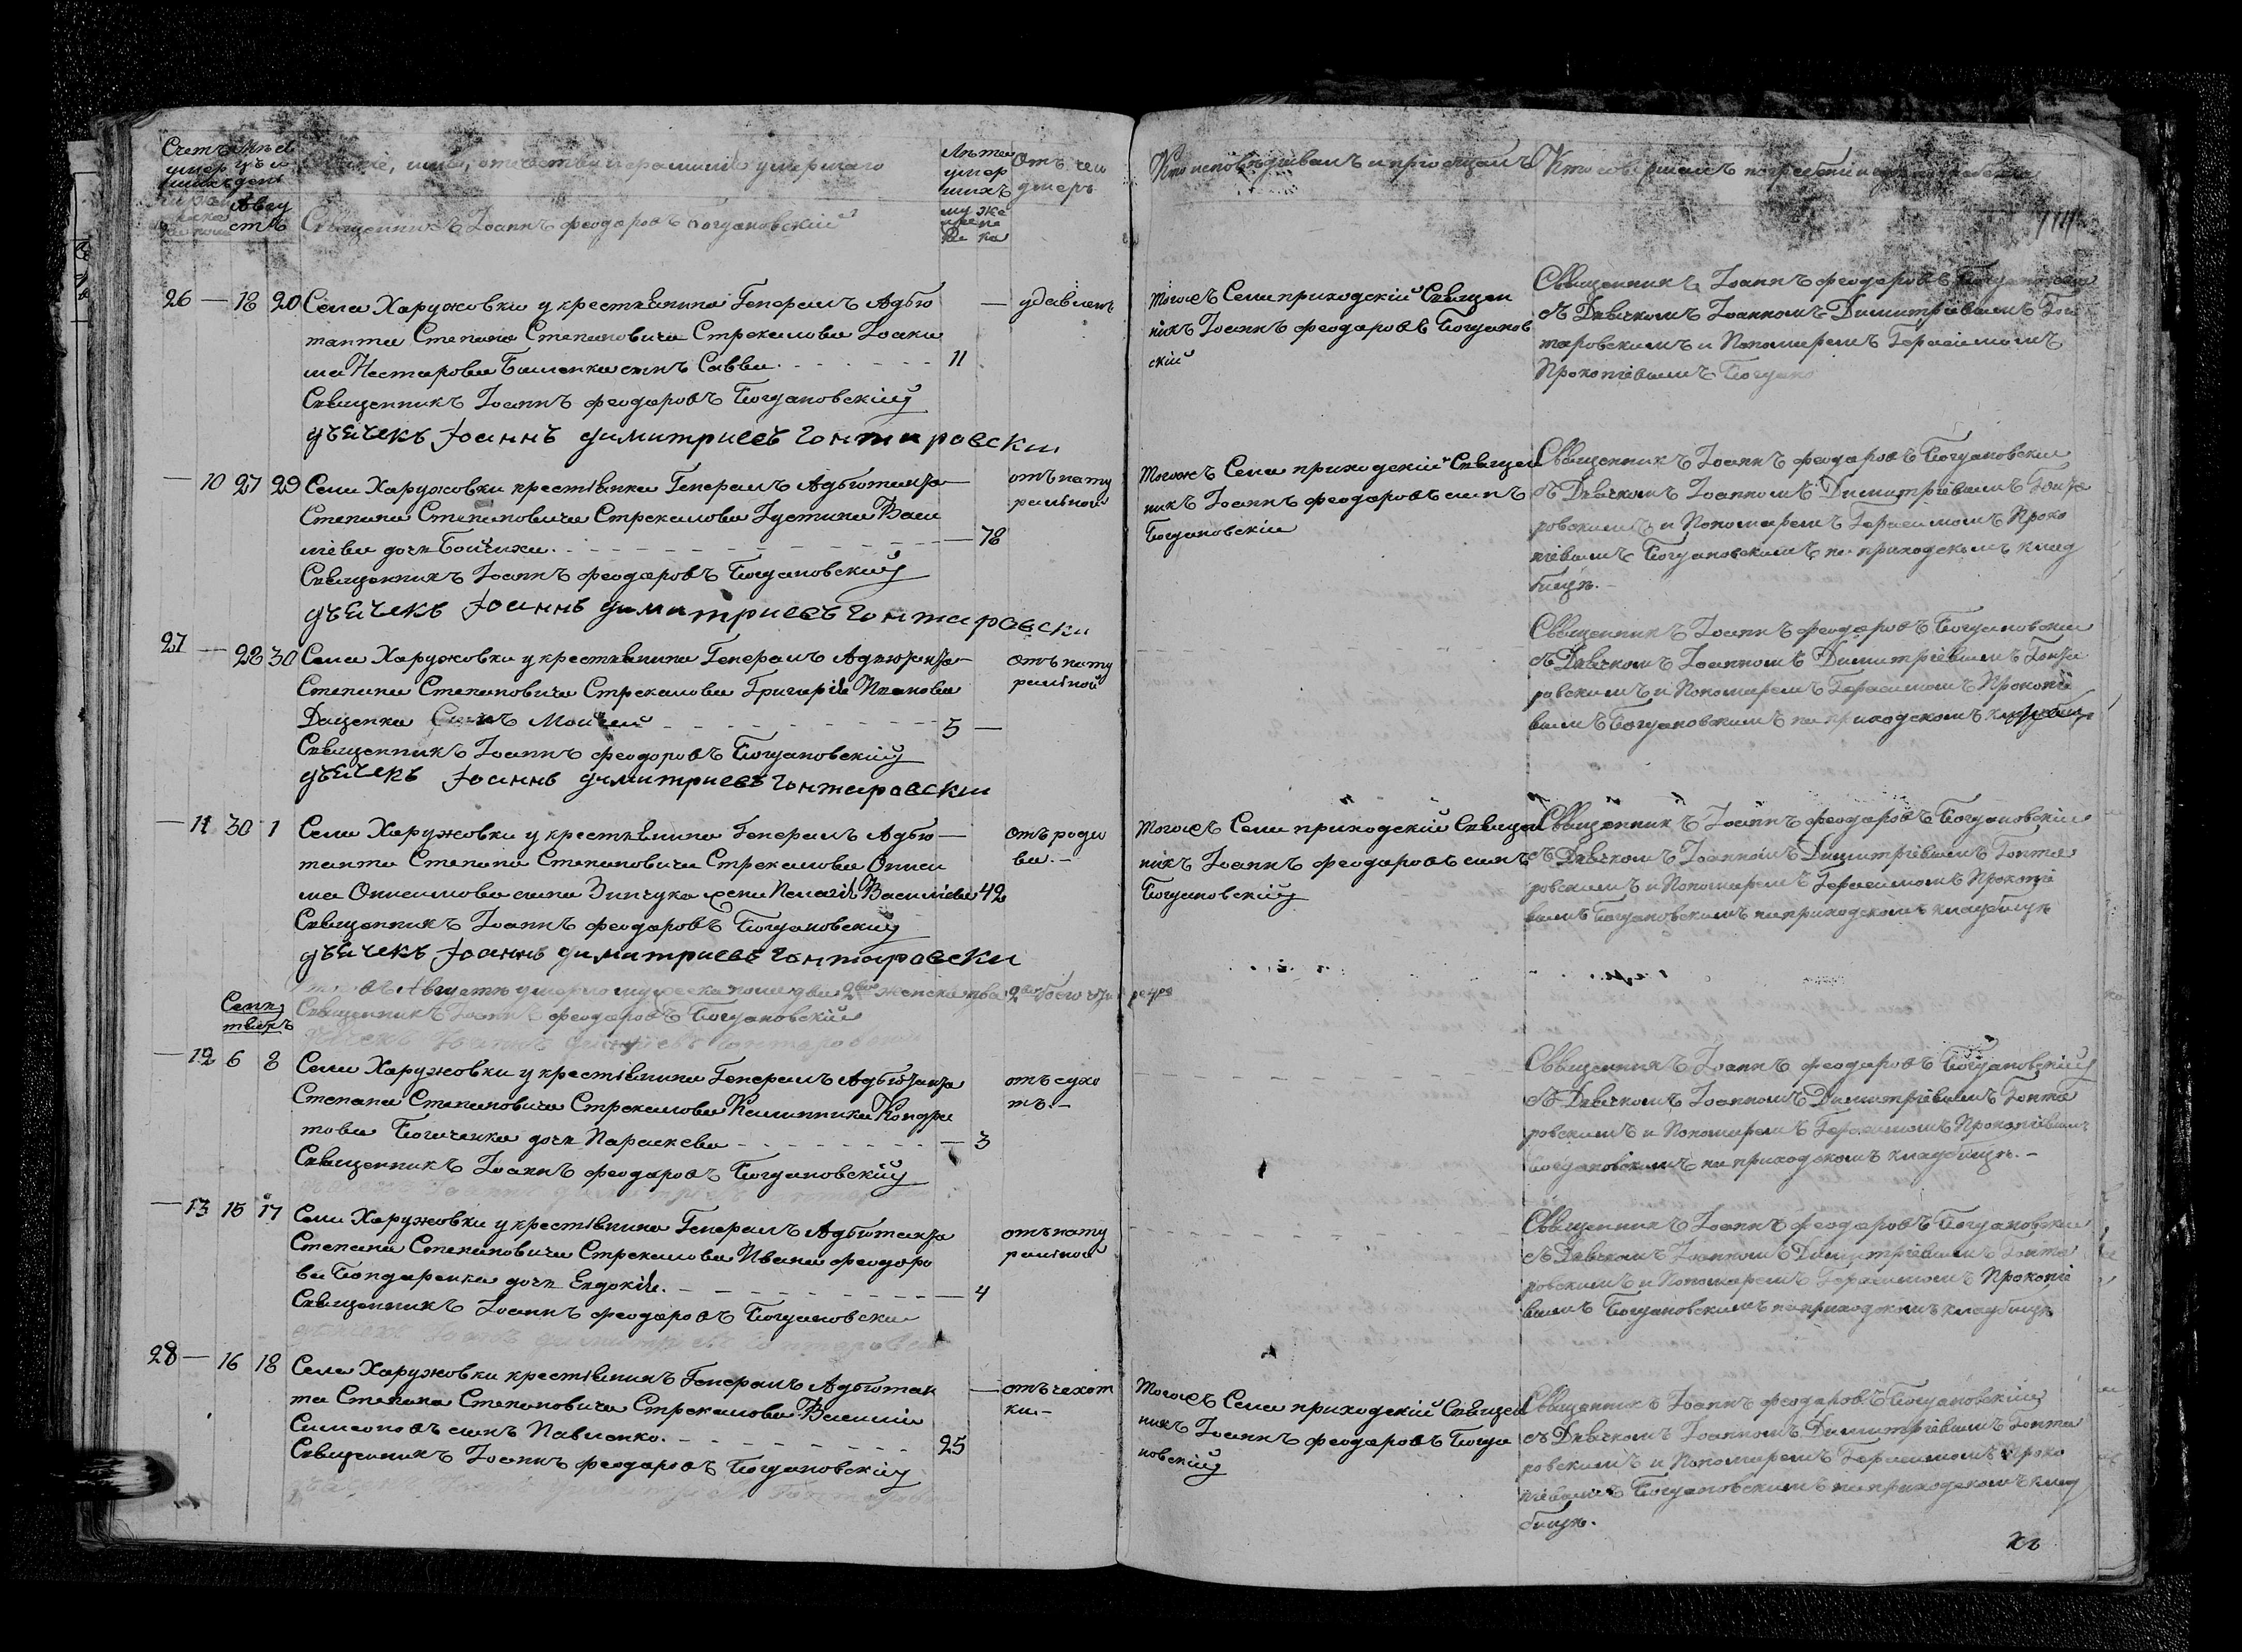 Счетъ умер шихъ
Мѣся цъ и день
имя, отчество и фамилія умершаго
Лѣта умер шихъ
Отъ чего умеръ
Кто исповѣдывалъ и пріобщалъ
Кто совершалъ погребеніе и
Авгу стъ
Священникъ Іоаннъ Феодоровъ Богдановскій
му же
26 — 18 20 Села Харужовки у крестьянина Генералъ Адъю — удавленъ
танта Степана Степановича Стрекалова Іоаки
ма Нестарова Башенка сынъ Савва. 11
Священникъ Іоаннъ Феодоровъ Богдановскій
дъячекъ Іоаннъ димитриевъ гонтаровски
тогожъ Села приходскій Священ
никъ Іоаннъ Феодоровъ Богданов
скій
Священникъ Іоаннъ Феодоровъ Богдановскій
съ Дьячкомъ Іоанномъ Димитріевымъ Гон
таровскимъ и Пономаремъ Герасимомъ
Прокопіевымъ Богдано
— 10 27 29 Села Харужовки крестьянка Генералъ Адъютанта — отъ нату
Степана Степановича Стрекалова Іустина Васи ральной
ліева дочь Бойчиха. — 78
Священникъ Іоаннъ Феодоровъ Богдановскій
дъячекъ Іоаннъ димитриевъ гонтаровски
тогожъ Села приходскій Священ
никъ Іоаннъ Феодоровъ сынъ
Богдановскій
Священникъ Іоаннъ Феодоровъ Богдановскій
съ Дьячкомъ Іоанномъ Димитріевымъ Гонта
ровскимъ и Пономаремъ Герасимомъ Проко
піевымъ Богдановскимъ на приходскомъ клад
бищѣ.
27 — 28 30 Села Харужовки у крестьянина Генералъ Адъютанта — отъ нату
Степана Степановича Стрекалова Григорія Иванова ральной
Даценка Сынъ Моисей 5 —
Священникъ Іоаннъ Феодоровъ Богдановскій
дъячекъ Іоаннъ димитриевъ гонтаровски
Священникъ Іоаннъ Феодоровъ Богдановскій
съ Дьячкомъ Іоанномъ Димитріевымъ Гонта
ровскимъ и Пономаремъ Герасимомъ Прокопіе
вымъ Богдановскимъ на приходскомъ кладбищѣ
— 11 30 1 Села Харужовки у крестьянина Генералъ Адъю — отъ родо
танта Степана Степановича Стрекалова Ониси въ. —
ма Онисимова сына Зинчука жена Пелагія Василіева 42
Священникъ Іоаннъ Феодоровъ Богдановскій
дъячекъ Іоаннъ димитриевъ гонтаровски
тогожъ Села приходскій Священ
никъ Іоаннъ Феодоровъ сынъ
Богдановскій
Священникъ Іоаннъ Феодоровъ Богдановскій
съ Дьячкомъ Іоанномъ Димитріевымъ Гонта
ровскимъ и Пономаремъ Герасимомъ Прокопіе
вымъ Богдановскимъ на приходскомъ кладбищѣ
въ Августѣ умерло мужеска пола два женска два
Священникъ Іоаннъ Феодоровъ Богдановскій
Сеп тябрь
— 12 6 8 Села Харужовки у крестьянина Генералъ Адъютанта отъ сухо
Степана Степановича Стрекалова Калинника Кондра тъ. —
това дочь Параскева — 3
Священникъ Іоаннъ Феодоровъ Богдановскій
Священникъ Іоаннъ Феодоровъ Богдановскій
съ Дьячкомъ Іоанномъ Димитріевымъ Гонта
ровскимъ и Пономаремъ Герасимомъ Прокопіевымъ
Богдановскимъ на приходскомъ кладбищѣ. —
— 13 15 17 Села Харужовки у крестьянина Генералъ Адъютанта отъ нату
Степана Степановича Стрекалова Ивана Феодоро ральной
ва Бондаренка дочь Евдокія. — 4
Священникъ Іоаннъ Феодоровъ Богдановскій
Священникъ Іоаннъ Феодоровъ Богдановскій
съ Дьячкомъ Іоанномъ Димитріевымъ Гонта
ровскимъ и Пономаремъ Герасимомъ Прокопіе
вымъ Богдановскимъ на приходскомъ кладбищѣ
28 — 16 18 Села Харужовки крестьянинъ Генералъ Адъютан — отъ чехот
та Степана Степановича Стрекалова Василій ки. —
Симеоновъ сынъ Павленко. 25
Священникъ Іоаннъ Феодоровъ Богдановскій
Тогожъ Села приходскій Священ
никъ Іоаннъ Феодоровъ Богда
новскій
Священникъ Іоаннъ Феодоровъ Богдановскій
съ Дьячкомъ Іоанномъ Димитріевымъ Гонта
ровскимъ и Пономаремъ Герасимомъ Проко
піевымъ Богдановскимъ на приходскомъ клад
бищѣ.